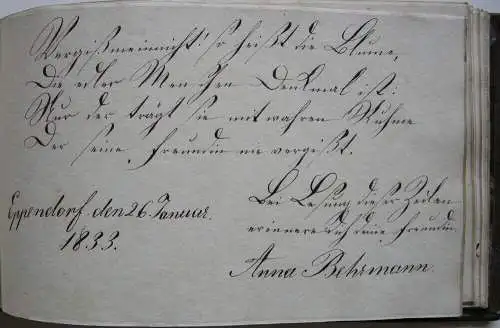 Vergißmeinnicht! so heißt die Blume,
Die edler Menschen Denkmal ist:
Nur der trägt sie mit wahren Ruhme
Der seine Freundin nie vergißt.
Eppendorf den 26. Januar.
1833.
Bei Lesung dieser Zeilen
erinnere dich deine Freundin.
Anna Behrmann.